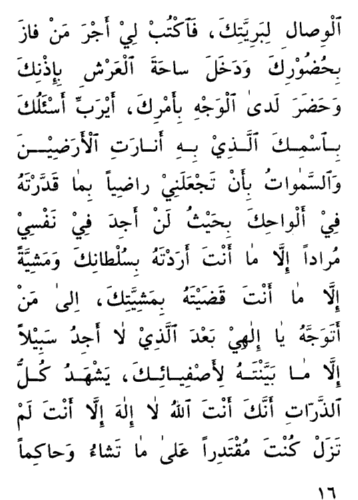 ٱلْوِصالِ لِبَرِيَّتِكَ، فَٱكْتُبْ لِيْ أَجْرَ مَنْ فازَ
بِحُضُوْرِكَ وَدَخَلَ ساحَةَ ٱلْعَرْشِ بِإِذْنِكَ
وَحَضَرَ لَدىٰ ٱلْوَجْهِ بِأَمْرِكَ، أَيْرَبِّ أَسْئَلُكَ
بِٱسْمِكَ ٱلَّذِيْ بِهِ أَنارَتِ ٱلْأَرَضِيْنَ
وَٱلسَّمٰواتُ بِأَنْ تَجْعَلَنِيْ راضِياً بِما قَدَّرْتَهُ
فِيْ أَلْواحِكَ بِحَيْثُ لَنْ أَجِدَ فِيْ نَفْسِيْ
مُراداً إِلَّا ما أَنْتَ أَرَدْتَهُ بِسُلْطانِكَ وَمَشِيَّةً
إِلَّا ما أَنْتَ قَضَيْتَهُ بِمَشِيَّتِكَ، إِلىٰ مَنْ
أَتَوَجَّهُ يا إِلٰهِيْ بَعْدَ ٱلَّذِيْ لا أَجِدُ سَبِيْلاً
إِلَّا ما بَيَّنْتَهُ لِأَصْفِيائِكَ، يَشْهَدُ كُلُّ
ٱلذَّرّاتِ أَنَّكَ أَنْتَ ٱللهُ لا إِلهَ إِلَّا أَنْتَ لَمْ
تَزَلْ كُنْتَ مُقْتَدِراً عَلىٰ ما تَشاءُ وَحاكِماً
١٦